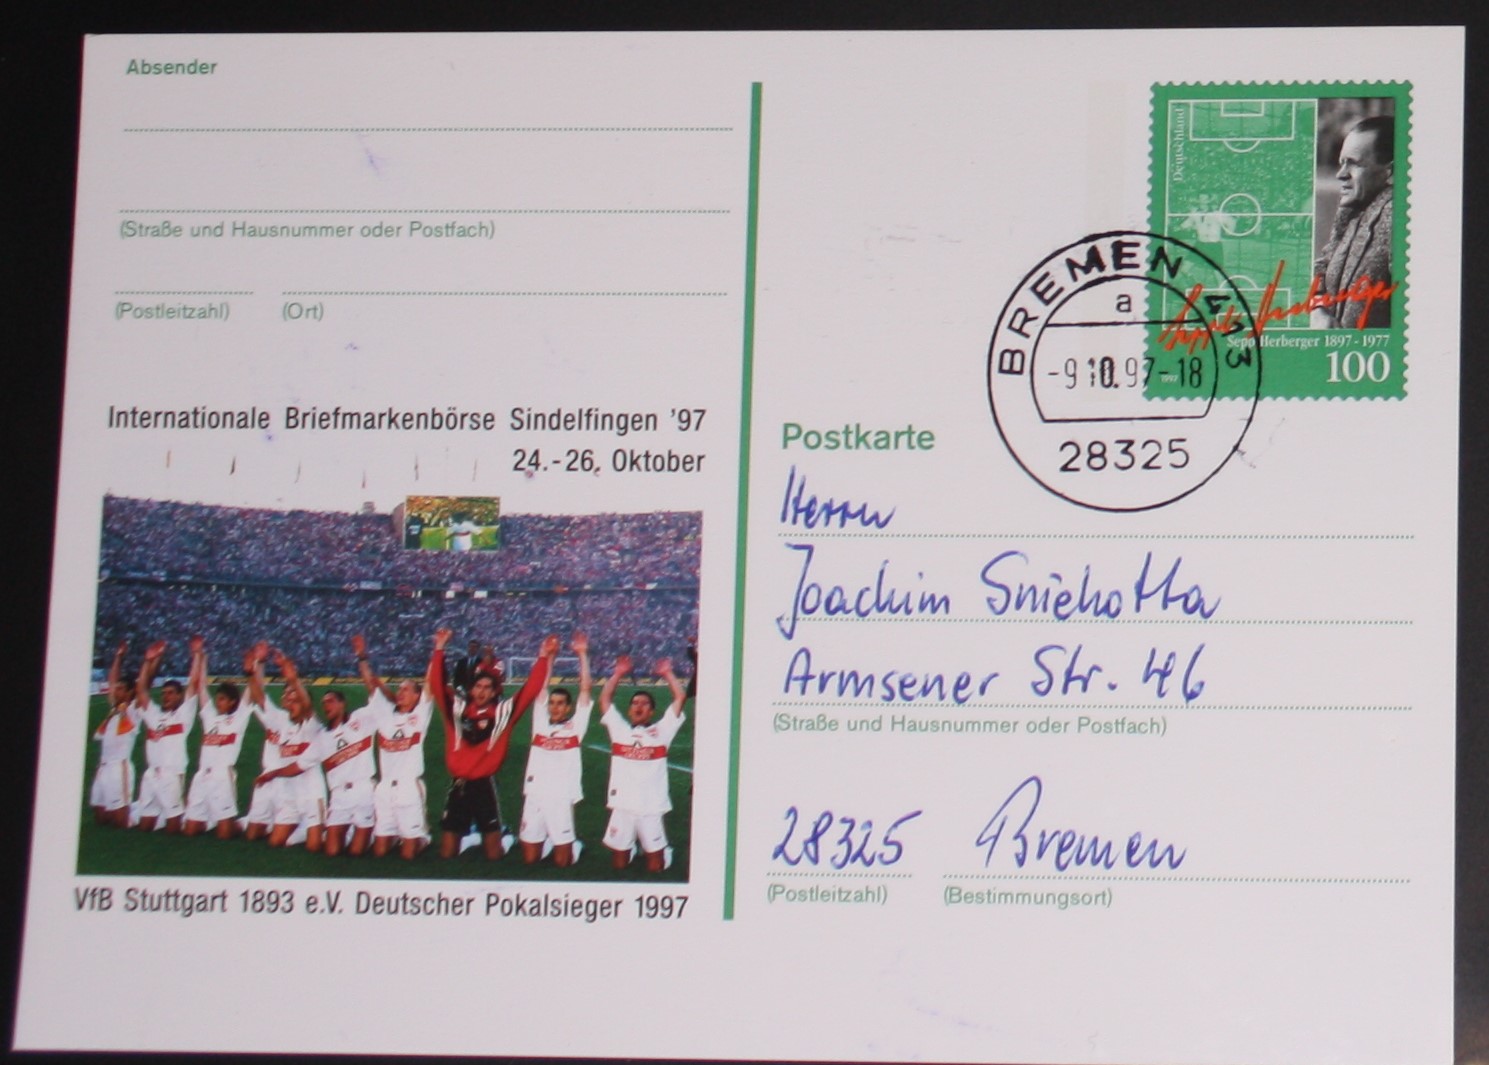 Absender
(Straße und Hausnummer oder Postfach)
(Postleitzahl) (Ort)
Internationale Briefmarkenbörse Sindelfingen '97
24.-26. Oktober
VfB Stuttgart 1893 e.V. Deutscher Pokalsieger 1997
Deutschland
Sepp Herberger
Sepp Herberger 1897-1977
1997
100
BREMEN 413
a
-9.10.97-18
28325
Postkarte
Herrn
Joachim Sniehotta
Armsener Str. 46
(Straße und Hausnummer oder Postfach)
28325 Bremen
(Postleitzahl) (Bestimmungsort)